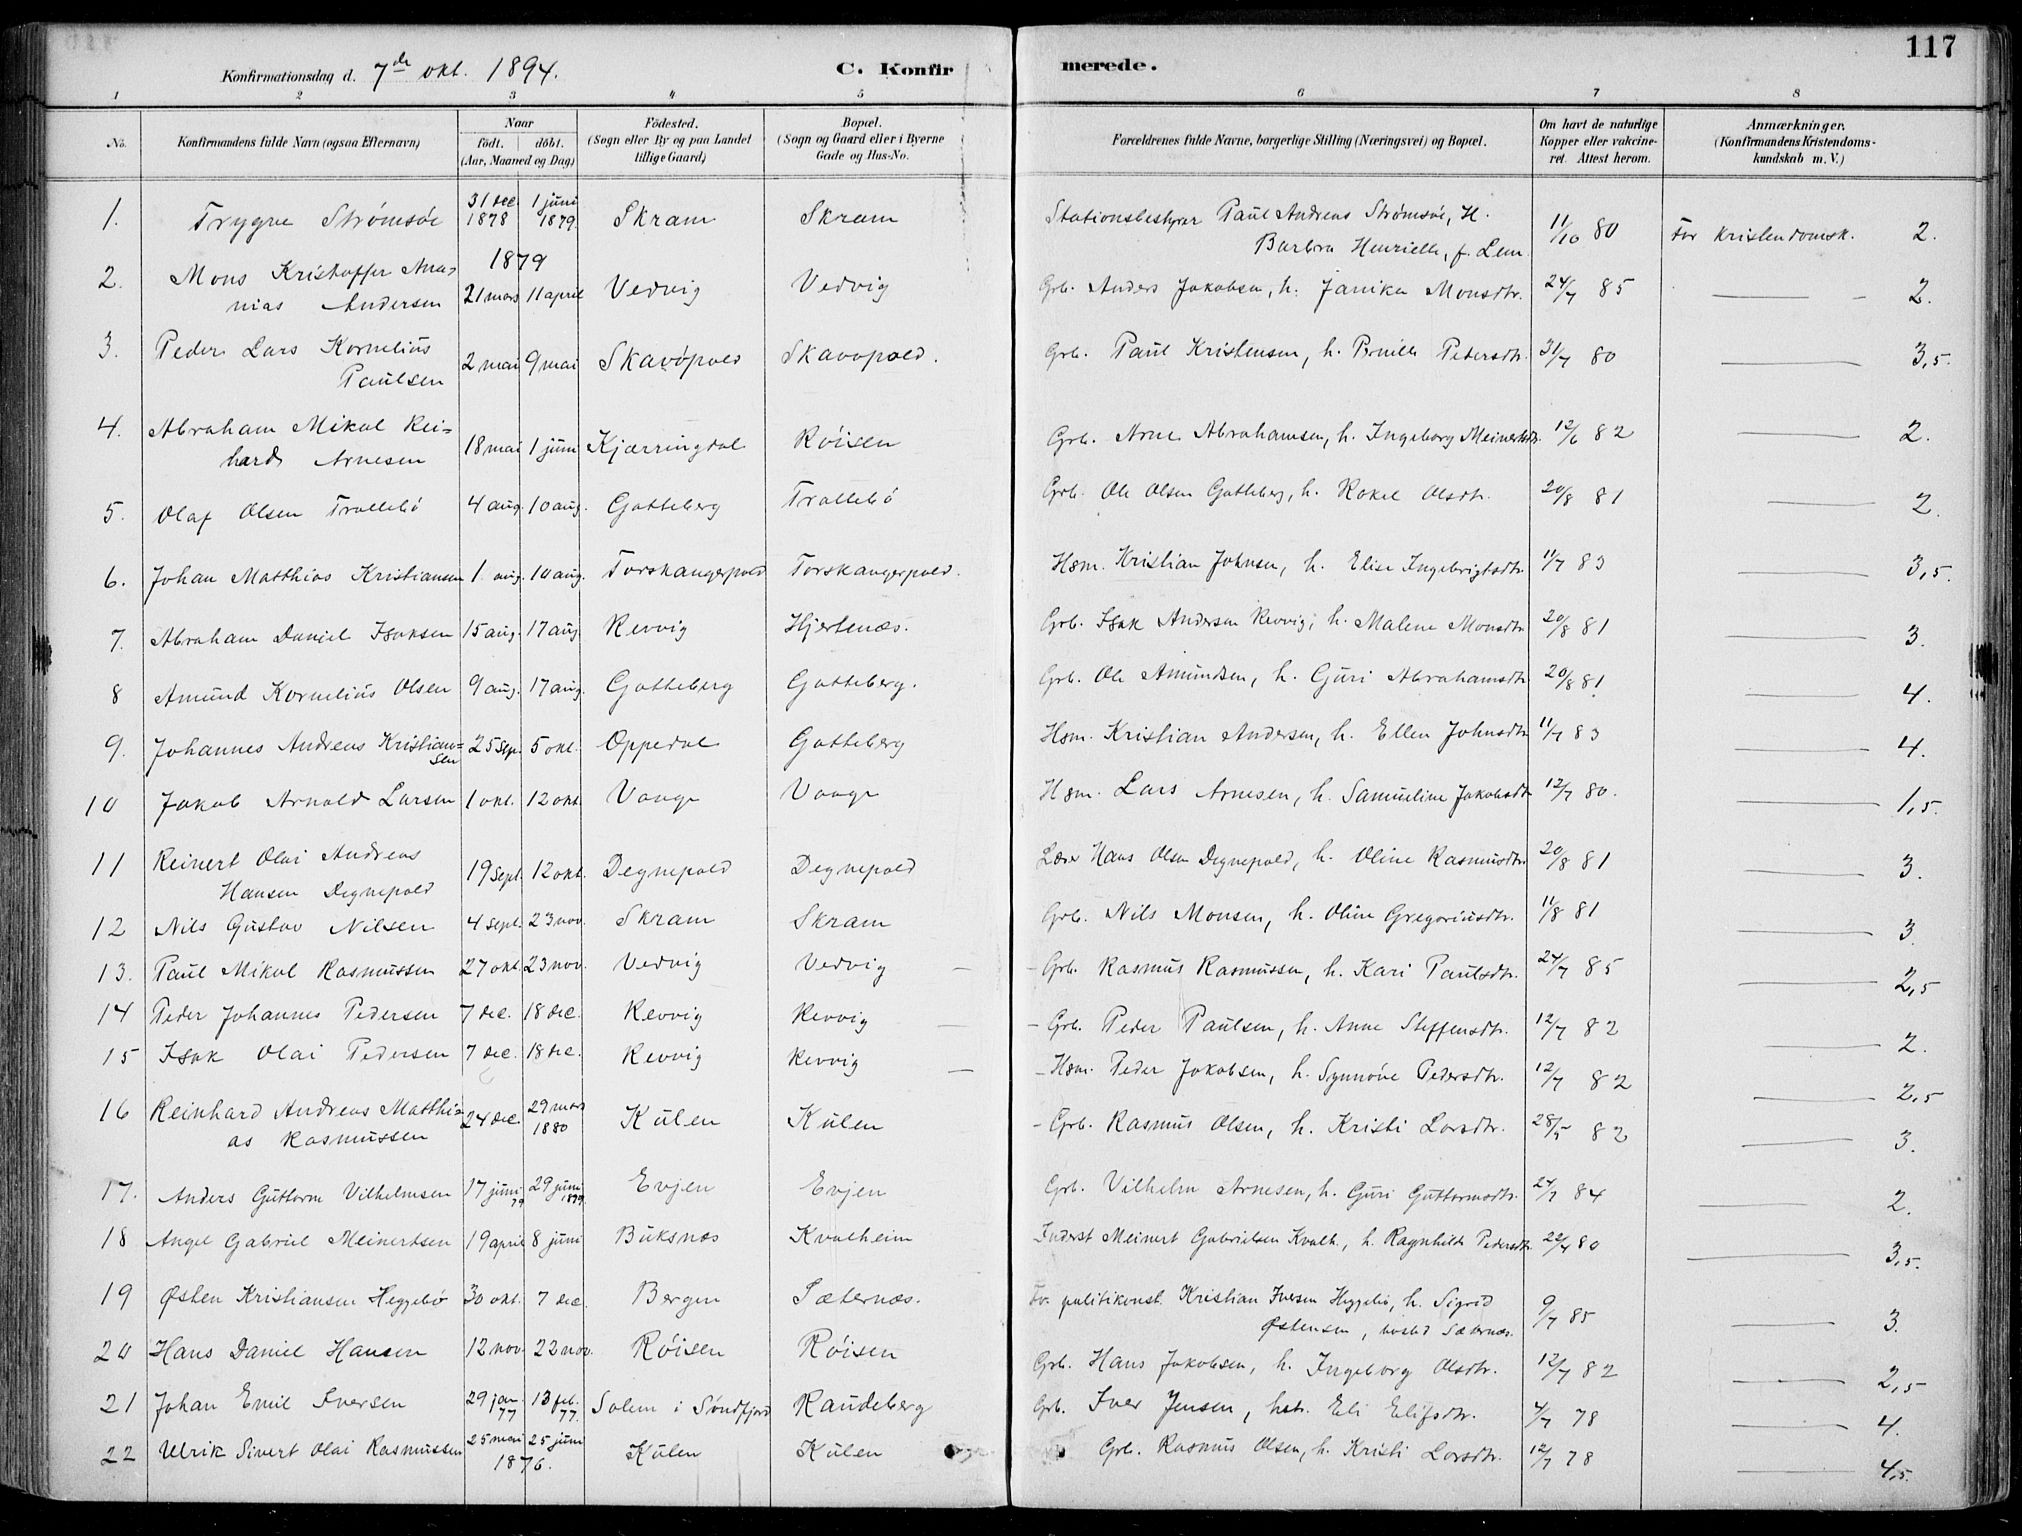 117
Konfirmationsdag d. 7de okt. 1894.
C. Konfirmerede.
1 2 3 4 5 6 7 8
No. Konfirmandens fulde Navn (ogsaa Efternavn) Naar födt. döbt. (Aar, Maaned og Dag) Födested. (Sogn eller By og paa Landet tillige Gaard) Bopæl. (Sogn og Gaard eller i Byerne Gade og Hus-No. Forældrenes fulde Navne, borgerlige Stilling (Næringsvei) og Bopæl. Om havt de naturlige Kopper eller vakcineret. Attest herom. Anmærkninger. (Konfirmandens Kristendomskundskab m. V.)
1. Trygve Strømsöe 31 dec. 1878 1 juni 1879. Skram Skram Stationsbestyrer Paul Andreas Strømsöe, H. Barbra Henriette, f. Lem 11/10 80 For kristendomsk. 2.
1879
2. Mons Kristoffer Ananias Andersen 21 mars 11 april Vedvig Vedvig Grb. Anders Jakobsen, h. Janika Monsdtr. 24/7 85 — 2.
3. Peder Lars Kornelius Paulsen 2 mai 9 mai Skavöpold Skavopold. Grb. Paul Kristensen, h. Pernille Pedersdtr. 31/7 80 — 3,5.
4. Abraham Mikal Reihard Arnesen 18 mai 1 juni Kjærringdal Röisen Grb. Arne Abrahamsen, h. Ingeborg Meinertsdtr. 12/6 82 — 2.
5. Olaf Olsen Trollebö 4 aug. 10 aug. Gotteberg Trollebö Grb. Ole Olsen Gotteberg, h. Rakel Olsdtr. 20/8 81 — 2.
6. Johan Matthias Kristiansen 1 aug. 10 aug. Torskangerpold Torskangerpold. Hsm. Kristian Johnsen, h. Elise Ingebrigtsdtr. 11/7 83 — 3,5.
7. Abraham Daniel Isaksen 15 aug. 17 aug. Revvig Hjertenæs. Grb. Isak Andersen Revvig, h. Malene Monsdtr. 20/8 81 — 3.
8 Amund Kornelius Olsen 9 aug. 17 aug. Gotteberg Gotteberg. Grb. Ole Amundsen, h. Guri Abrahamsdtr. 20/8 81 — 4.
9. Johannes Andreas Kristiansen 25 sep. 5 okt. Oppedal Gotteberg Hsm. Kristian Andersen, h. Ellen Johnsdtr. 11/7 83 — 4.
10 Jakob Arnold Larsen 1 okt. 12 okt. Vaage Vaage Hsm. Lars Arnesen, h. Samueline Jakobsdtr. 12/7 80. — 1,5.
11 Reinert Olai Andreas Hansen Degnepold 19 sept. 12 okt. Degnepold Degnepold Lærer Hans Olsen Degnepold, h. Oline Rasmusdtr. 20/8 81 — 3.
12 Nils Gustav Nilsen 4 sept. 23 nov. Skram Skram Grb. Nils Monsen, h. Oline Gregoriusdtr. 11/8 81 — 3.
13. Paul Mikal Rasmussen 27 okt. 23 nov. Vedvig Vedvig — Grb. Rasmus Rasmussen, h. Kari Paulsdtr. 24/7 85 — 2,5
14 Peder Johannes Pedersen 7 dec. 18 dec. Revvig Revvig — Grb. Peder Paulsen, h. Anne Steffensdtr. 12/7 82 — 2.
15 Isak Olai Pedersen 7 dec. 18 dec. Revvig Revvig — Hsm. Peder Jakobsen, h. Synnöve Pedersdtr. 12/7 82 — 2,5
16 Reinhard Andreas Matthias Rasmussen 24 dec 29 mars 1880 Kulen Kulen – Grb. Rasmus Olsen, h. Kristi Larsdtr. 28/5 82 — 3.
17. Anders Guttorm Vilhelmsen 17 juni 79 29 juni 1879. Evjen Evjen Grb. Vilhelm Arnesen, h. Guri Guttormsdtr. 24/7 84 — 2.
18 Angel Gabriel Meinertsen 19 april 8 juni Buksnæs Kvalheim Inderst Meinert Gabrielsen Kvalh., h. Ragnhilde Pedersdtr. 22/4 80 — 3,5.
19 Østen Kristiansen Heggebö 30 okt. 7 dec. Bergen Sæternæs. Fv. politikonst. Kristian Iversen Heggebö, h. Sigrid Østensen, bosted Sæternæs. 9/7 85 — 3.
20 Hans Daniel Hansen 12 nov. 22 nov. Röisen Röisen Grb. Hans Jakobsen, h. Ingeborg Olsdtr. 12/7 82 — 2,5
21 Johan Emil Iversen 29 jan. 77 13 feb. 77. Solem i Söndfjord Raudeberg Grb. Iver Jensen, hst. Eli Elifsdtr. 4/7 78 — 4.
22 Ulrik Sivert Olai Rasmussen 25 mai 25 juni 1876. Kulen Kulen Grb. Rasmus Olsen, h. Kristi Larsdtr. 12/7 78 — 4,5.